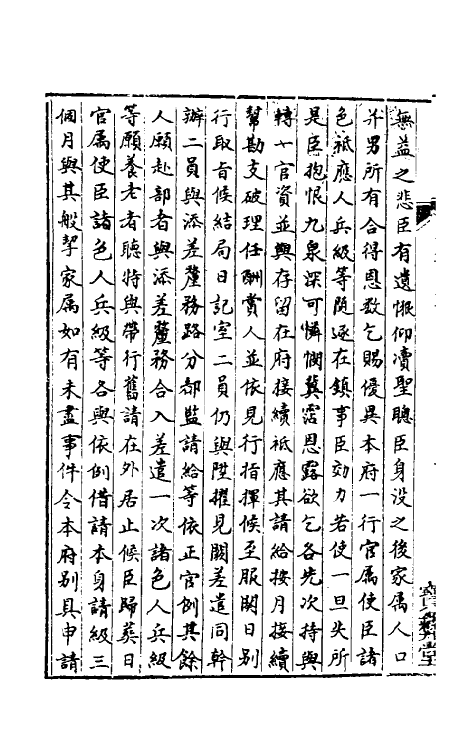 無益之悲臣有遺恨仰瀆聖聽臣身没之後家属人口
并男所有合得恩数乞賜優異本府一行官属使臣諸
色祗應人兵級等随逐在鎮事臣効力若使一旦失所
是臣抱恨九泉深可憐憫冀霑恩露欲乞各先次特與
轉一官資並與存留在府接續祗應其請給按月接續
幫勘支破理任酬賞人並依見行指揮候至服闋日别
行取旨候結局日記室二員仍與陞擢見闕差遣同幹
辦二員與添差釐務路分都監請給等依正官例其餘
人願赴部者與添差釐務合入差遣一次諸色人兵級
等願養老者聽特與帶行舊請在外居止候臣歸葬日
官属使臣諸色人兵級等各與依例借請本身請級三
個月與其般挈家属如有未盡事件令本府别具申請